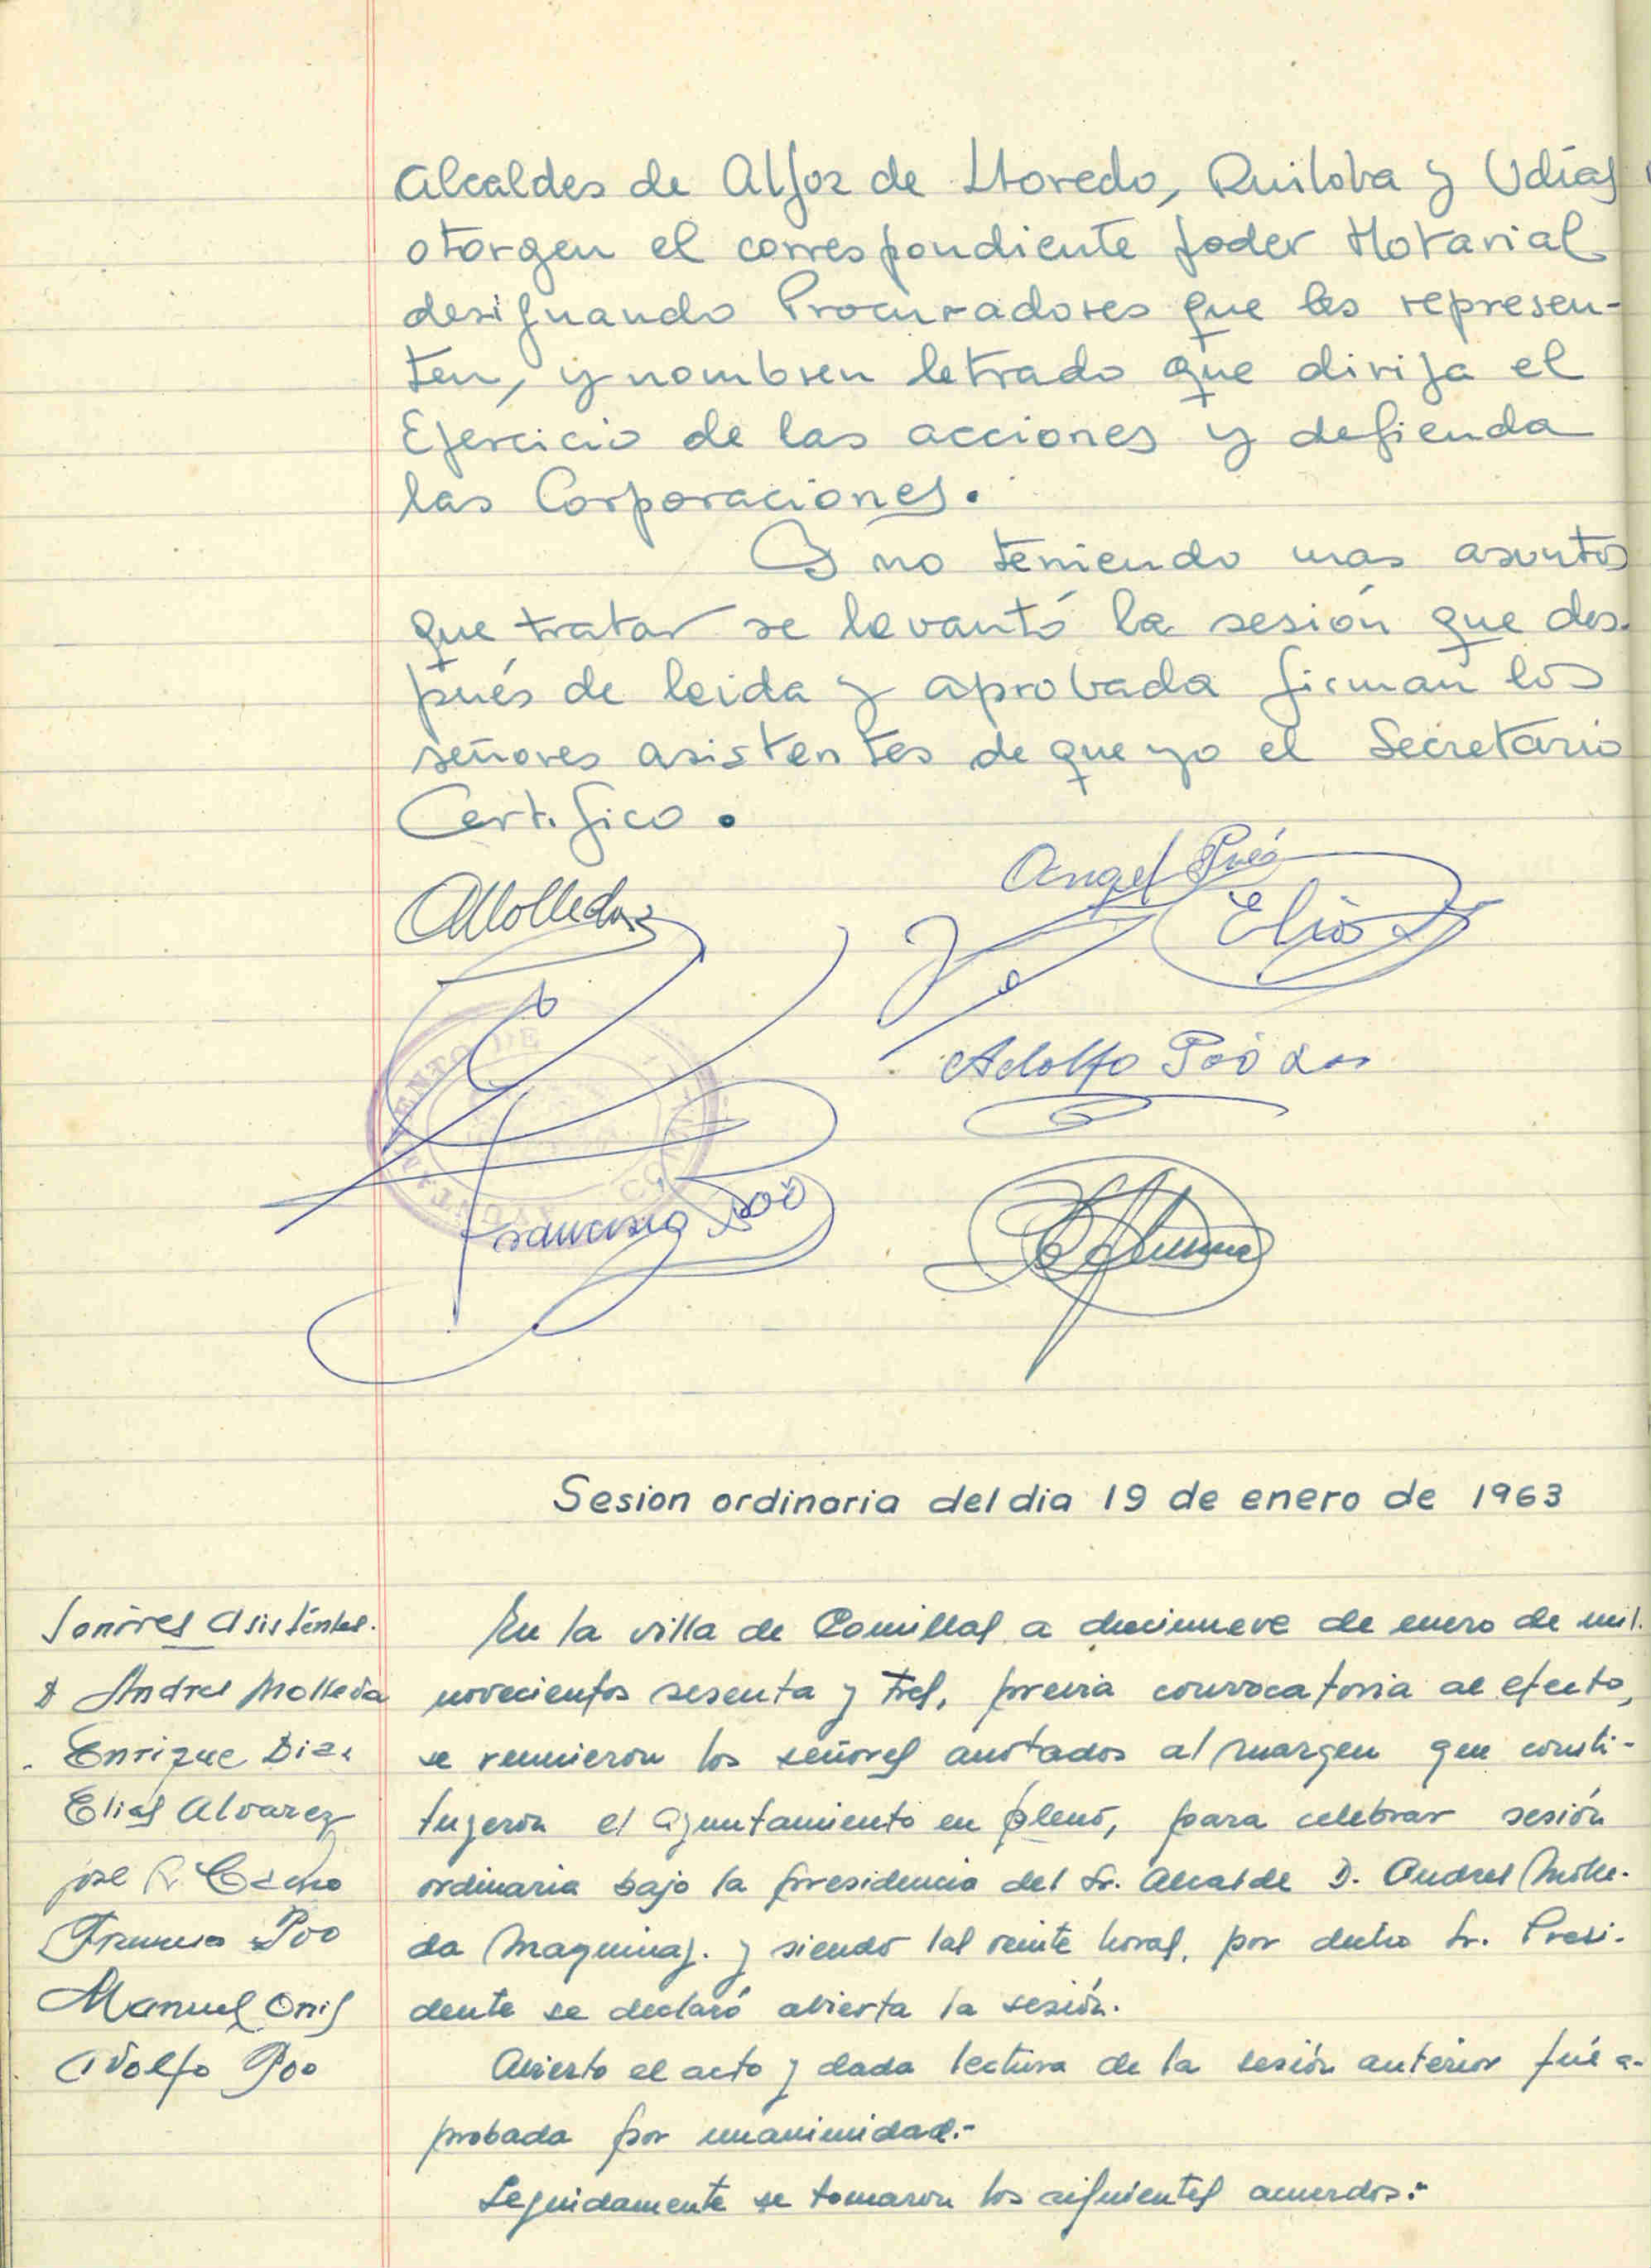 Alcaldes de Alfoz de Lloredo, Ruiloba y Udías
otorgen el correspondiente poder Notarial
designando Procuradores que les represen-
ten, y nombren letrado que dirija el
Ejercicio de las acciones y defienda
las Corporaciones.
Y no teniendo mas asuntos
que tratar se levantó la sesión que des-
pués de leida y aprobada firman los
señores asistentes de que yo el Secretario
Certifico.
AMolleda
Angel Pueó
Elias
Adolfo Poó
AYUNTAMIENTO DE
Francisco Poó
Sesion ordinaria del dia 19 de enero de 1963
Señores Asistentes.
D Andres Molleda
Enrique Diaz
Elias Alvarez
jose R. Cacho
Francisco Poo
Manuel Onis
Adolfo Poo
En la villa de Comillas a diecinueve de enero de mil
novecientos sesenta y tres, previa convocatoria al efecto,
se reunieron los señores anotados al margen que consti-
tuyeron el Ayuntamiento en pleno, para celebrar sesión
ordinaria bajo la presidencia del Sr. Alcalde D. Andres Molle-
da Maquinay. y siendo las veinte horas, por dicho Sr. Presi-
dente se declaró abierta la sesión.
Abierto el acto y dada lectura de la sesión anterior fué a-
probada por unanimidad.-
Seguidamente se tomaron los siguientes acuerdos:-